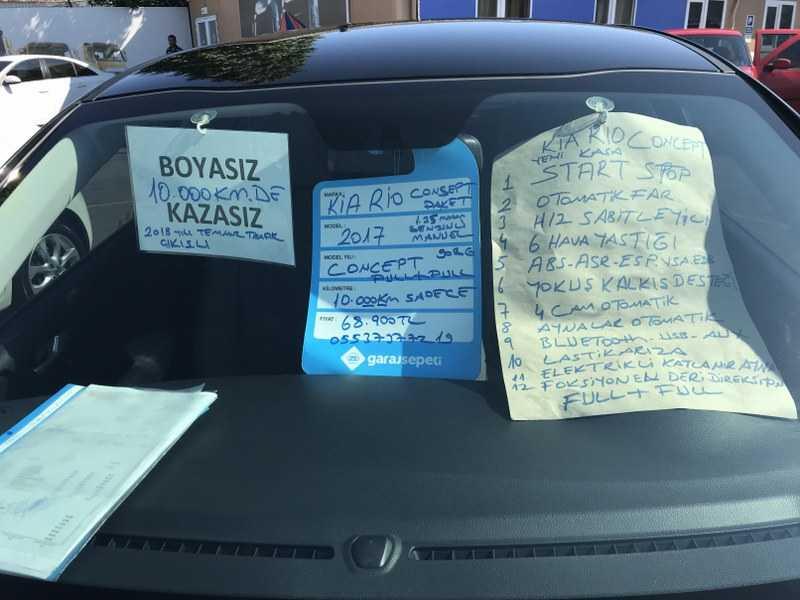 BOYASIZ
10.000KM.DE
KAZASIZ
2018 YILI TEMMUZ TRAFİK
ÇIKIŞLI
MARKA:
KiA RiO CONSEPT
PAKET
MODEL:
2017
1.25 MOTOR
BENZİNLİ
MANUEL
MODEL YILI:
90BG
CONCEPT
FULL+FULL
KİLOMETRE:
10.000Km SADECE
FİYAT:
68.900TL
garajsepeti
KİA RİO CONCEPT
YENİ KASA
1 START STOP
2 OTOMATİK FAR
3 HIZ SABİTLEYİCİ
4 6 HAVA YASTIĞI
5 ABS-ASR-ESP
6 YOKUŞ KALKIŞ DESTEĞİ
7 4 CAM OTOMATİK
8 AYNALAR OTOMATİK
9 BLUETOOTH-USB-AUX
10 LASTİK ARIZA
11 ELEKTRİKLİ KATLANIR AYNA
12 FOKSİYONEL DERİ DİREKSİYON
FULL + FULL